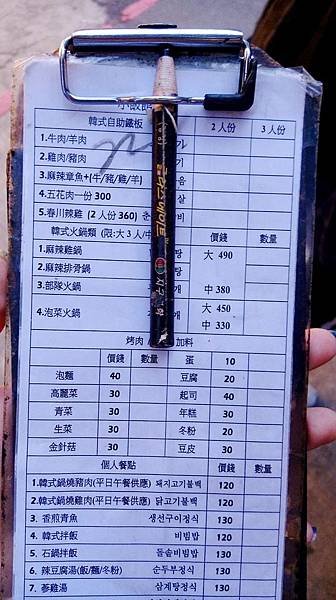 小飯館
韓式自助鐵板 2人份 3人份
1.牛肉/羊肉 기
2.雞肉/豬肉 기
3.麻辣章魚+(牛/豬/雞/羊) 음
4.五花肉一份 300 살
5.春川辣雞 (2人份 360) 춘 비
韓式火鍋類 (限:大3人/中 價錢 數量
1.麻辣雞鍋 탕 大 490
2.麻辣排骨鍋 탕
3.部隊火鍋 개 中380
4.泡菜火鍋 개 大 450
中 330
烤肉 加料
價錢 數量 蛋 10
泡麵 40 豆腐 20
高麗菜 30 起司 40
青菜 30 年糕 30
生菜 30 冬粉 20
金針菇 30 豆皮 30
個人餐點 價錢 數量
1.韓式鍋燒豬肉(平日午餐供應) 돼지고기불백 120
2.韓式鍋燒雞肉(平日午餐供應) 닭고기불백 120
3. 香煎青魚 생선구이정식 130
4. 韓式拌飯 비빔밥 120
5. 石鍋拌飯 돌솥비빔밥 130
6. 辣豆腐湯(飯/麵/冬粉) 순두부정식 130
7. 蔘雞湯 삼계탕정식 130